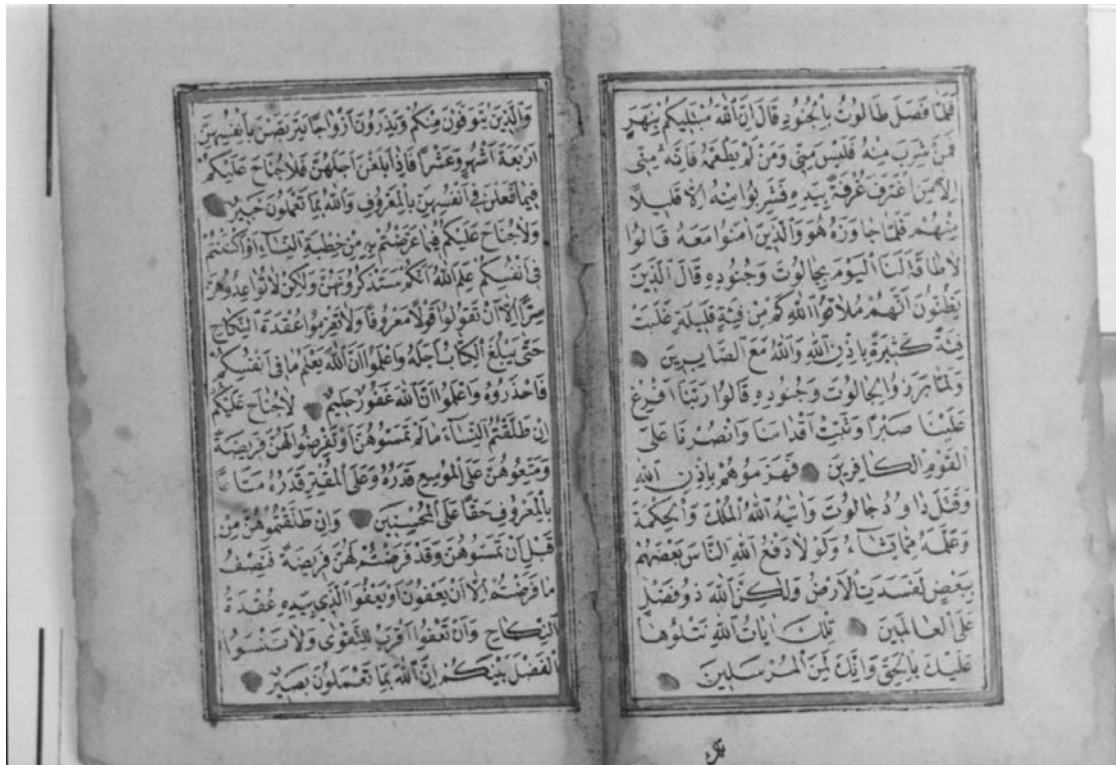 فَلَمَّا فَصَلَ طَالُوتُ بِالْجُنُودِ قَالَ اِنَّ اللّٰهَ مُبْتَلِيكُمْ بِنَهَرٍ
فَمَنْ شَرِبَ مِنْهُ فَلَيْسَ مِنّٖى وَمَنْ لَمْ يَطْعَمْهُ فَاِنَّهُ مِنّٖى
اِلَّا مَنِ اغْتَرَفَ غُرْفَةً بِيَدِهِ فَشَرِبُوا مِنْهُ اِلَّا قَلِيلًا
مِنْهُمْ فَلَمَّا جَاوَزَهُ هُوَ وَالَّذِينَ اٰمَنُوا مَعَهُ قَالُوا
لَا طَاقَةَ لَنَا الْيَوْمَ بِجَالُوتَ وَجُنُودِهِ قَالَ الَّذِينَ
يَظُنُّونَ اَنَّهُمْ مُلَاقُوا اللّٰهِ كَمْ مِنْ فِئَةٍ قَلِيلَةٍ غَلَبَتْ
فِئَةً كَثِيرَةً بِاِذْنِ اللّٰهِ وَاللّٰهُ مَعَ الصَّابِرِينَ
وَلَمَّا بَرَزُوا لِجَالُوتَ وَجُنُودِهِ قَالُوا رَبَّنَا اَفْرِغْ
عَلَيْنَا صَبْرًا وَثَبِّتْ اَقْدَامَنَا وَانْصُرْنَا عَلَى
الْقَوْمِ الْكَافِرِينَ فَهَزَمُوهُمْ بِاِذْنِ اللّٰهِ
وَقَتَلَ دَاوُدُ جَالُوتَ وَاٰتٰيهُ اللّٰهُ الْمُلْكَ وَالْحِكْمَةَ
وَعَلَّمَهُ مِمَّا يَشَاءُ وَلَوْلَا دَفْعُ اللّٰهِ النَّاسَ بَعْضَهُمْ
بِبَعْضٍ لَفَسَدَتِ الْاَرْضُ وَلٰكِنَّ اللّٰهَ ذُو فَضْلٍ
عَلَى الْعَالَمِينَ تِلْكَ اٰيَاتُ اللّٰهِ نَتْلُوهَا
عَلَيْكَ بِالْحَقِّ وَاِنَّكَ لَمِنَ الْمُرْسَلِينَ
وَالَّذِينَ يُتَوَفَّوْنَ مِنْكُمْ وَيَذَرُونَ اَزْوَاجًا يَتَرَبَّصْنَ بِاَنْفُسِهِنَّ
اَرْبَعَةَ اَشْهُرٍ وَعَشْرًا فَاِذَا بَلَغْنَ اَجَلَهُنَّ فَلَا جُنَاحَ عَلَيْكُمْ
فِيمَا فَعَلْنَ فِى اَنْفُسِهِنَّ بِالْمَعْرُوفِ وَاللّٰهُ بِمَا تَعْمَلُونَ خَبِيرٌ
وَلَا جُنَاحَ عَلَيْكُمْ فِيمَا عَرَّضْتُمْ بِهِ مِنْ خِطْبَةِ النِّسَاءِ اَوْ اَكْنَنْتُمْ
فِى اَنْفُسِكُمْ عَلِمَ اللّٰهُ اَنَّكُمْ سَتَذْكُرُونَهُنَّ وَلٰكِنْ لَا تُوَاعِدُوهُنَّ
سِرًّا اِلَّا اَنْ تَقُولُوا قَوْلًا مَعْرُوفًا وَلَا تَعْزِمُوا عُقْدَةَ النِّكَاحِ
حَتّٰى يَبْلُغَ الْكِتَابُ اَجَلَهُ وَاعْلَمُوا اَنَّ اللّٰهَ يَعْلَمُ مَا فِى اَنْفُسِكُمْ
فَاحْذَرُوهُ وَاعْلَمُوا اَنَّ اللّٰهَ غَفُورٌ حَلِيمٌ لَا جُنَاحَ عَلَيْكُمْ
اِنْ طَلَّقْتُمُ النِّسَاءَ مَا لَمْ تَمَسُّوهُنَّ اَوْ تَفْرِضُوا لَهُنَّ فَرِيضَةً
وَمَتِّعُوهُنَّ عَلَى الْمُوسِعِ قَدَرُهُ وَعَلَى الْمُقْتِرِ قَدَرُهُ مَتَاعًا
بِالْمَعْرُوفِ حَقًّا عَلَى الْمُحْسِنِينَ وَاِنْ طَلَّقْتُمُوهُنَّ مِنْ
قَبْلِ اَنْ تَمَسُّوهُنَّ وَقَدْ فَرَضْتُمْ لَهُنَّ فَرِيضَةً فَنِصْفُ
مَا فَرَضْتُمْ اِلَّا اَنْ يَعْفُونَ اَوْ يَعْفُوَا الَّذِى بِيَدِهِ عُقْدَةُ
النِّكَاحِ وَاَنْ تَعْفُوا اَقْرَبُ لِلتَّقْوٰى وَلَا تَنْسَوُا
الْفَضْلَ بَيْنَكُمْ اِنَّ اللّٰهَ بِمَا تَعْمَلُونَ بَصِيرٌ